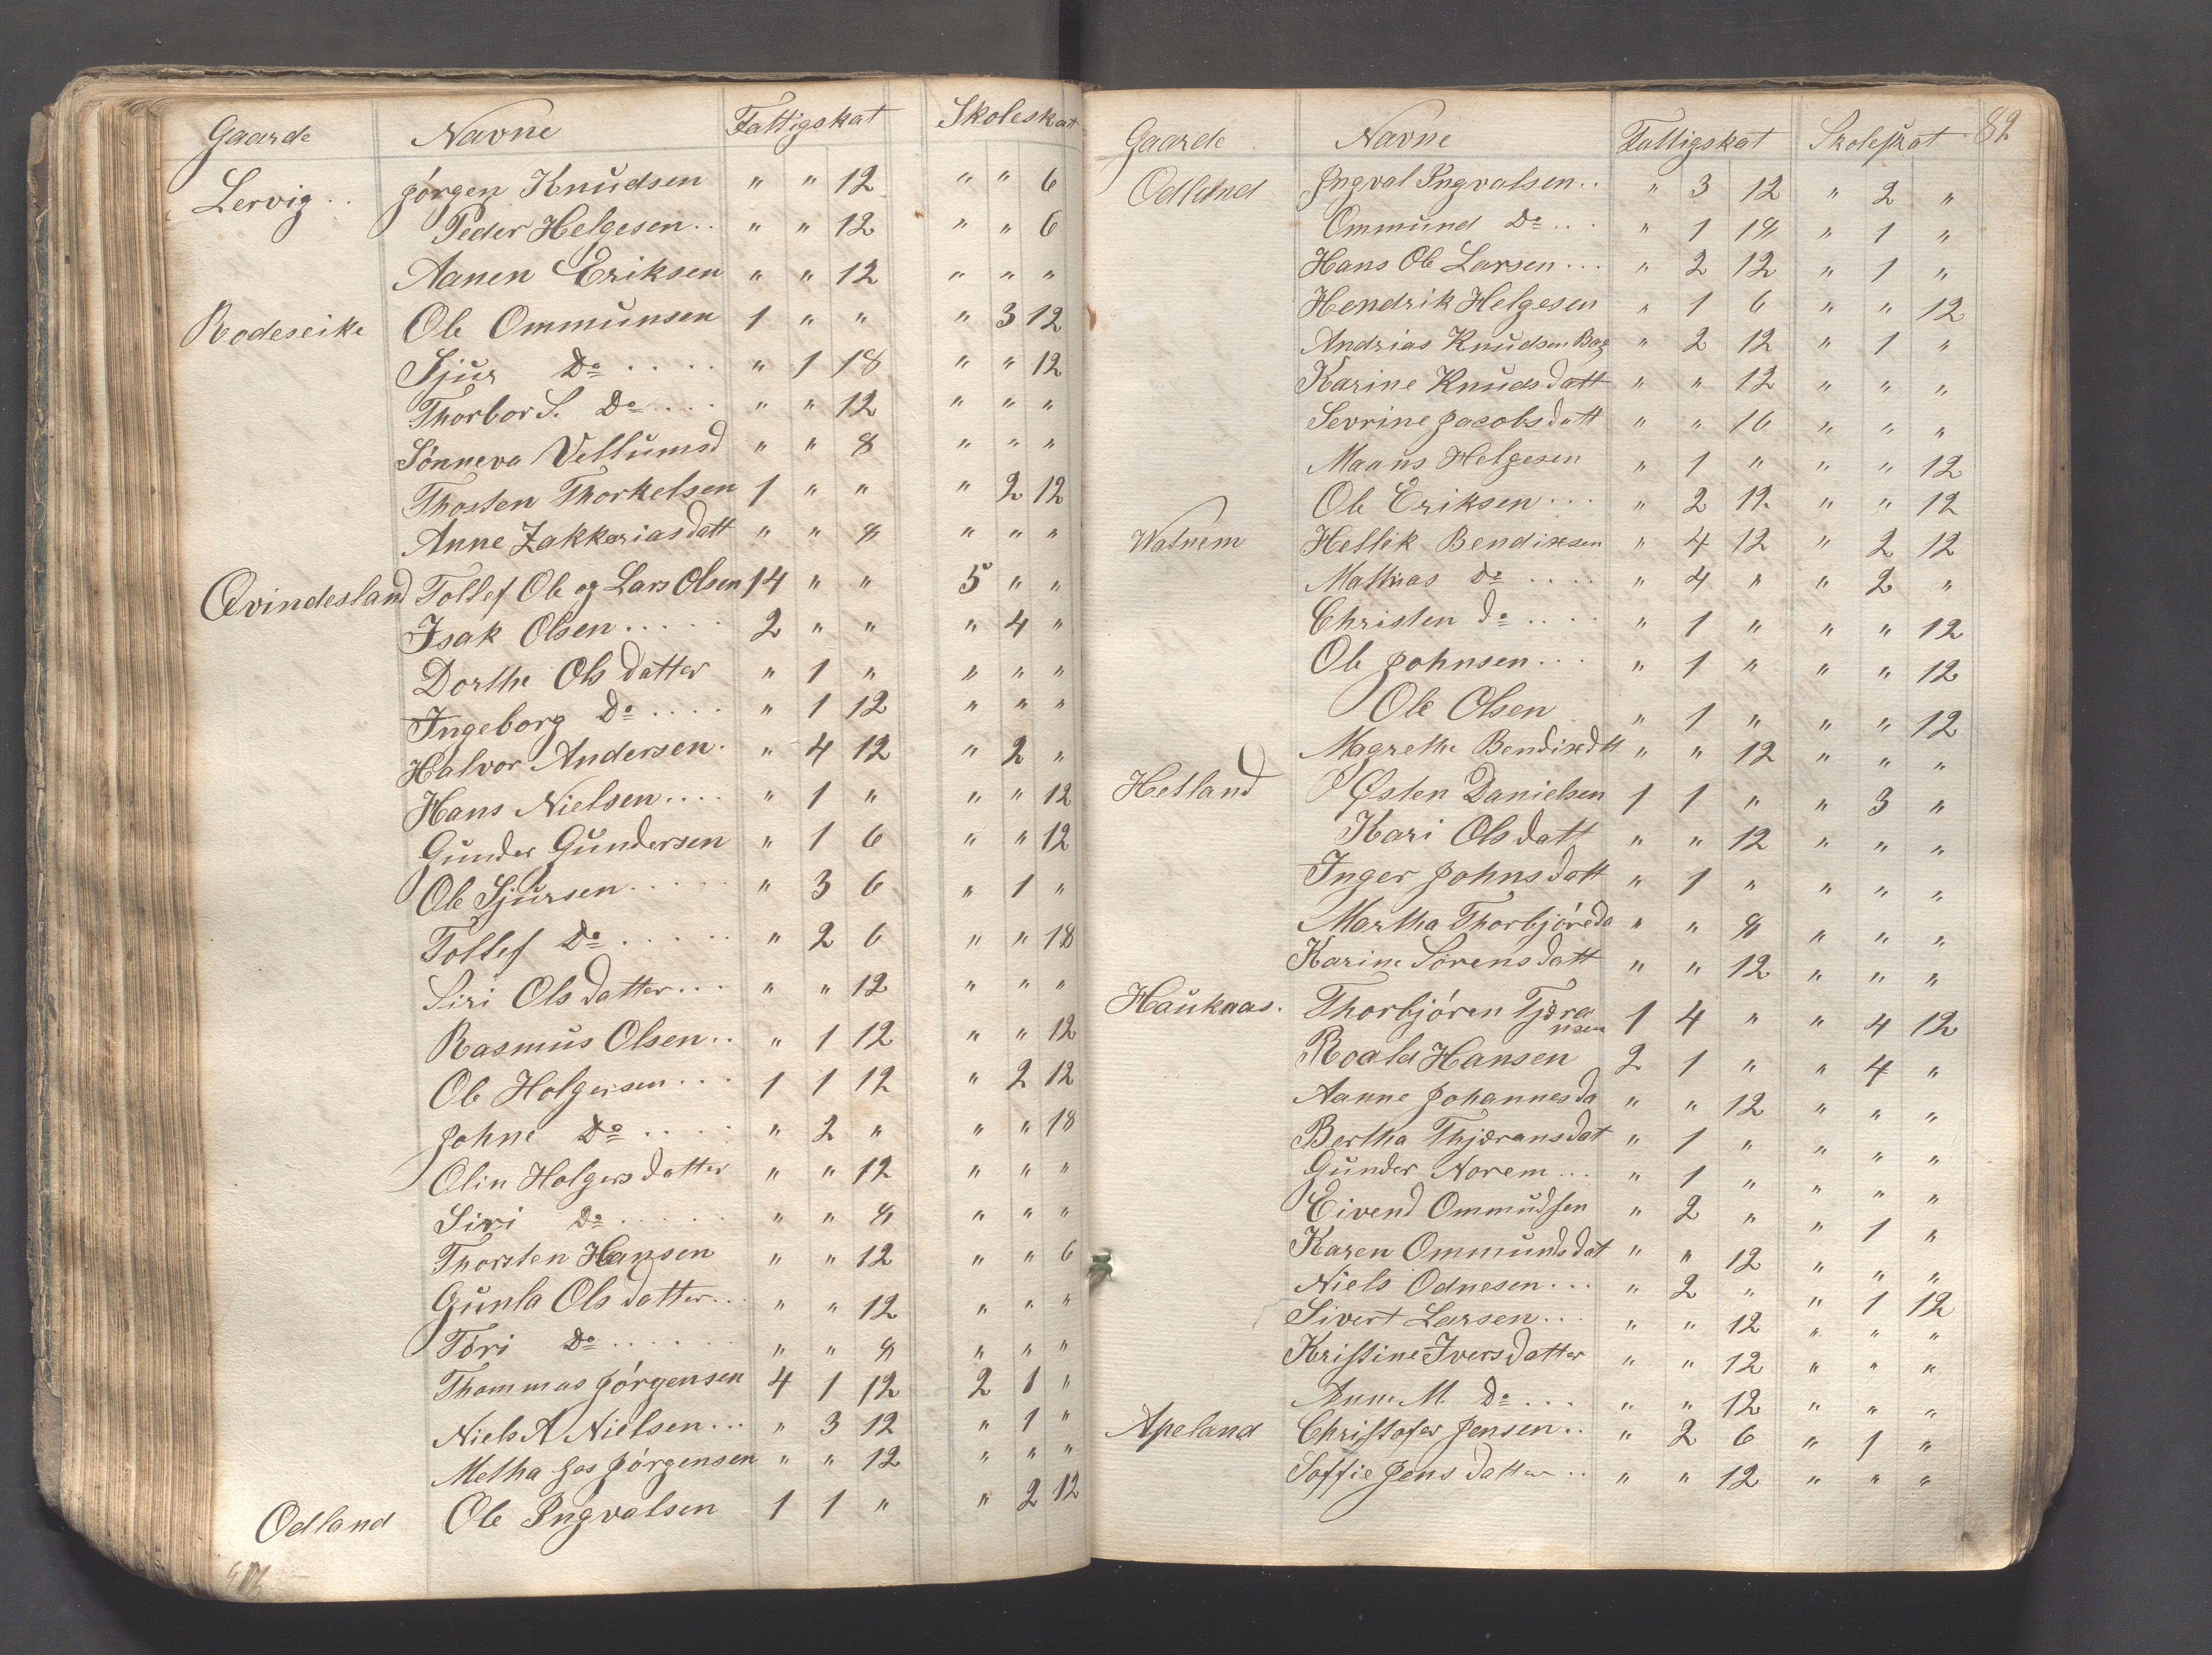 Gaarde Navne Fattigskat Skoleskat
Lervig .. Jørgen Knudsen " " 12 " " 6
Peder Helgesen .. " " 12 " " 6
Aanen Eriksen " " 12 " " "
Rodeseike Ole Ommunsen 1 " " " 3 12
Sjur Do ..... " 1 18 " " 12
Thorbor S. Do .... " " 12 " " "
Sønneva Vellumsd " " 8 " " "
Thosten Thorkelsen 1 " " " 2 12
Anne Zakkariasdatt " " 8 " " "
Qvindesland Tollef Ole og Lars Olsen 14 " " 5 " "
Isak Olsen ..... 2 " " " 4 "
Dorthe Olsdatter " 1 " " " "
Ingeborg Do .... " 1 12 " " "
Halvor Andersen . " 4 12 " 2 "
Hans Nielsen .... " 1 " " " 12
Gunder Gundersen " 1 6 " " 12
Ole Sjursen ..... " 3 6 " 1 "
Tollef Do ..... " 2 6 " " 18
Siri Olsdatter ... " " 12 " " "
Rasmus Olsen .. " 1 12 " " 12
Ole Holgersen ... 1 1 12 " 2 12
Johne Do .... " 2 " " " 18
Olin Holgersdatter " " 12 " " "
Siri Do ..... " " 8 " " "
Thorsten Hansen " " 12 " " 6
Gunla Olsdatter .. " " 12 " " "
Tori Do ..... " " 8 " " "
Thommas Jørgensen 4 1 12 2 1 "
Niels A Nielsen ... " 3 12 " 1 "
Metha hos Jørgensen " " 12 " " "
Odland Ole Ingvalsen 1 1 " " 2 12
Gaarde Navne Fattigskat Skoleskat 82
Odland Ingval Ingvalsen .. " 3 12 " 2 "
Ommund Do ... " 1 18 " 1 "
Hans Ole Larsen ... " 2 12 " 1 "
Hendrik Helgesen " 1 6 " " 12
Andrias Knudsen Bag " 2 12 " 1 "
Karine Knudsdatt " " 12 " " "
Sevrine Jacobsdatt " " 16 " " "
Maans Helgesen " 1 " " " 12
Ole Eriksen ... " 2 12 " " 12
Watnem Hellik Bendixsen " 4 12 " 2 12
Mathias Do .... " 4 " " 2 "
Christen do .... " 1 " " " 12
Ole Johnsen ... " 1 " " " 12
Ole Olsen " 1 " " " 12
Magrethe Bendixdtt " " 12 " " "
Hetland Østen Danielsen 1 1 " " 3 "
Kari Olsdatt " " 12 " " "
Inger Johnsdatt " 1 " " " "
Martha Thorbjørsda " " 8 " " "
Karine Sørensdatt " " 12 " " "
Hauknaas. Thorbjøren Tjæra
nsen 1 4 " " 4 12
Roald Hansen 2 1 " " 4 "
Aanne Johannesda " " 12 " " "
Bertha Thjæransdat " 1 " " " "
Gunder Norem ... " 1 " " " "
Eivend Ommudsen " 2 " " 1 "
Karen Ommundsdat " " 12 " " "
Niels Odnesen ... " 2 " " 1 12
Sivert Larsen ... " " 12 " " "
Kristine Iversdatter " " 12 " " "
Anne M. Do ... " " 12 " " "
Apeland Christofer Jensen .. " 2 6 " 1 "
Soffie Jensdatter .. " " 12 " " "